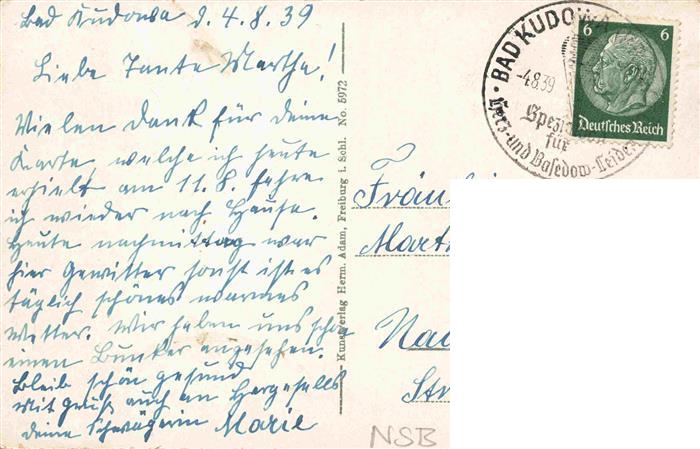 Bad Kudowa d. 4.8.39
Liebe Tante Martha!
Vielen dank für deine
Karte, welche ich heute
erhielt am 11.8. fahre
ich wieder nach Hause.
Heute nachmittag war
hier Gewitter sonst ist es
täglich schönes warmes
Wetter. Wir haben uns schon
einen Bunker angesehen.
Bleib schön gesund
Mit Gruß auch an Hergesells
deine Schwägerin Marie
Kunstverlag Herm. Adam, Freiburg i. Schl. No. 5972
BAD KUDOWA
-4.8.39
für
Herz- und Basedow-Leiden
6 6
Deutsches Reich
Fräu
Mart
Na
Str
NSB